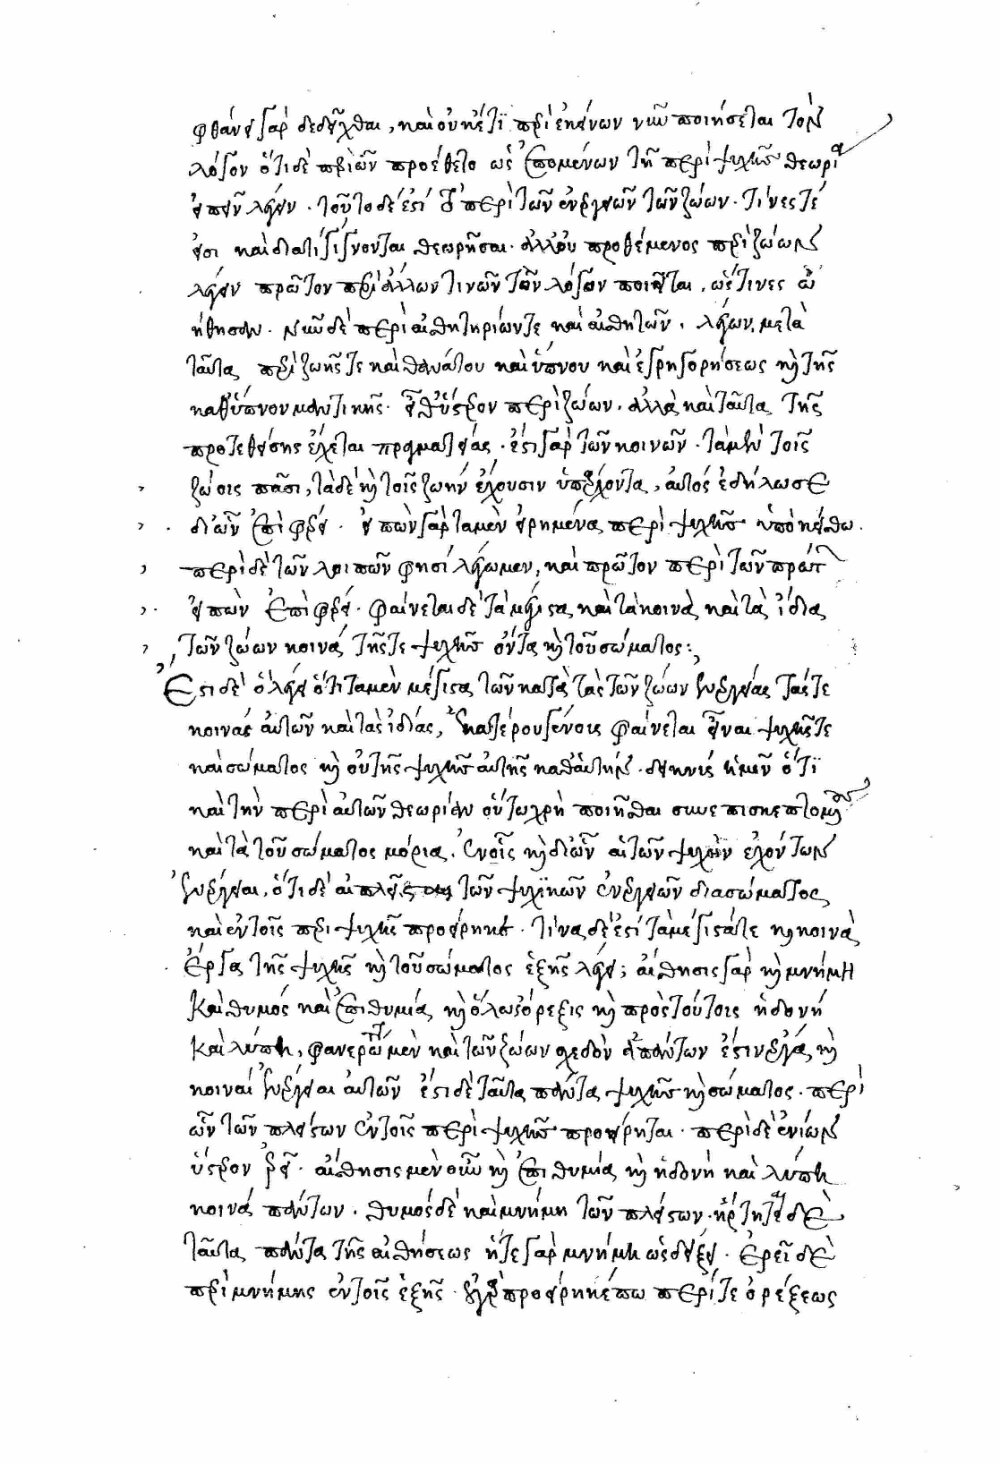 φθάνει γὰρ δεδεῖχθαι, καὶ οὐκέτι περὶ ἐκείνων νῦν ποιήσεται τὸν
λόγον ὅτι δὲ περὶ ὧν προέθετο ὡς ἑπομένων τῇ περὶ ψυχῆς θεωρίᾳ
εἰπεῖν λέγειν. τοῦτο δέ ἐστι τὸ περὶ τῶν ἐνεργειῶν τῶν ζώων. τίνες τέ
εἰσι καὶ διὰ τί γίγνονται θεωρῆσαι. ἀλλ' οὐ προθέμενος περὶ ζώων
λέγειν πρῶτον περὶ ἄλλων τινῶν τὸν λόγον ποιεῖται, ὥς τινες ᾠ
ήθησαν. νῦν δὲ περὶ αἰσθητηρίων τε καὶ αἰσθητῶν. λέγων μετὰ
ταῦτα περὶ ζωῆς τε καὶ θανάτου καὶ ὕπνου καὶ ἐγρηγορήσεως καὶ τῆς
καθ' ὕπνον μαντικῆς. εἶθ' ὕστερον περὶ ζώων. ἀλλὰ καὶ ταῦτα τῆς
προτεθείσης ἔχεται πραγματείας. ἔστι γὰρ τῶν κοινῶν. τὰ μὲν τοῖς
ζῴοις πᾶσι, τὰ δὲ καὶ τοῖς ζωὴν ἔχουσιν ὑπάρχοντα, αὐτὸς ἐδήλωσε
δι' ὧν ἐπιφέρει. εἰπὼν γὰρ τὰ μὲν εἰρημένα περὶ ψυχῆς ὑποκείσθω.
περὶ δὲ τῶν λοιπῶν φησι λέγωμεν, καὶ πρῶτον περὶ τῶν πρώτ
εἰπὼν ἐπιφέρει. φαίνεται δὲ τὰ μέγιστα καὶ τὰ κοινὰ καὶ τὰ ἴδια
τῶν ζώων κοινὰ τῆς τε ψυχῆς ὄντα καὶ τοῦ σώματος:
Ἔστι δὲ ὃ λέγει ὅτι τὰ μὲν μέγιστα τῶν κατὰ τὰς τῶν ζώων ἐνεργείας τάς τε
κοινὰς αὐτῶν καὶ τὰς ἰδίας, ἑκατέρου γένους φαίνεται εἶναι ψυχῆς τε
καὶ σώματος καὶ οὐ τῆς ψυχῆς αὐτῆς καθ' αὑτήν. δεικνὺς ἡμῖν ὅτι
καὶ τὴν περὶ αὐτῶν θεωρίαν οὕτω χρὴ ποιεῖσθαι συνεπισκεπτομένους
καὶ τὰ τοῦ σώματος μόρια. ἐν οἷς καὶ δι' ὧν αἱ τῶν ψυχὴν ἐχόντων
ἐνέργειαι, ὅτι δὲ αἱ πλεῖσται τῶν ψυχικῶν ἐνεργειῶν διὰ σώματος
καὶ ἐν τοῖς περὶ ψυχῆς προείρηκε. τίνα δέ ἐστι τὰ μέγιστά τε καὶ κοινὰ
ἔργα τῆς ψυχῆς καὶ τοῦ σώματος ἑξῆς λέγει; αἴσθησις γὰρ καὶ μνήμη
καὶ θυμὸς καὶ ἐπιθυμία καὶ ὅλως ὄρεξις καὶ πρὸς τούτοις ἡδονὴ
καὶ λύπη, φανερῶς μὲν καὶ τῶν ζώων σχεδὸν ἁπάντων ἐστὶν ἔργα καὶ
κοιναὶ ἐνέργειαι αὐτῶν ἔστι δὲ ταῦτα πάντα ψυχῆς καὶ σώματος. περὶ
ὧν τῶν πλείστων ἐν τοῖς περὶ ψυχῆς προείρηται. περὶ δὲ ἐνίων
ὕστερον ἐρεῖ. αἴσθησις μὲν οὖν καὶ ἐπιθυμία καὶ ἡδονὴ καὶ λύπη
κοινὰ πάντων. θυμὸς δὲ καὶ μνήμη τῶν πλείστων. ἤρτηται δὲ
ταῦτα πάντα τῆς αἰσθήσεως ἥ τε γὰρ μνήμη ὡς δείξει. ἐρεῖ δὲ
περὶ μνήμης ἐν τοῖς ἑξῆς. οὐ γὰρ προείρηκέ πω περί τε ὀρέξεως